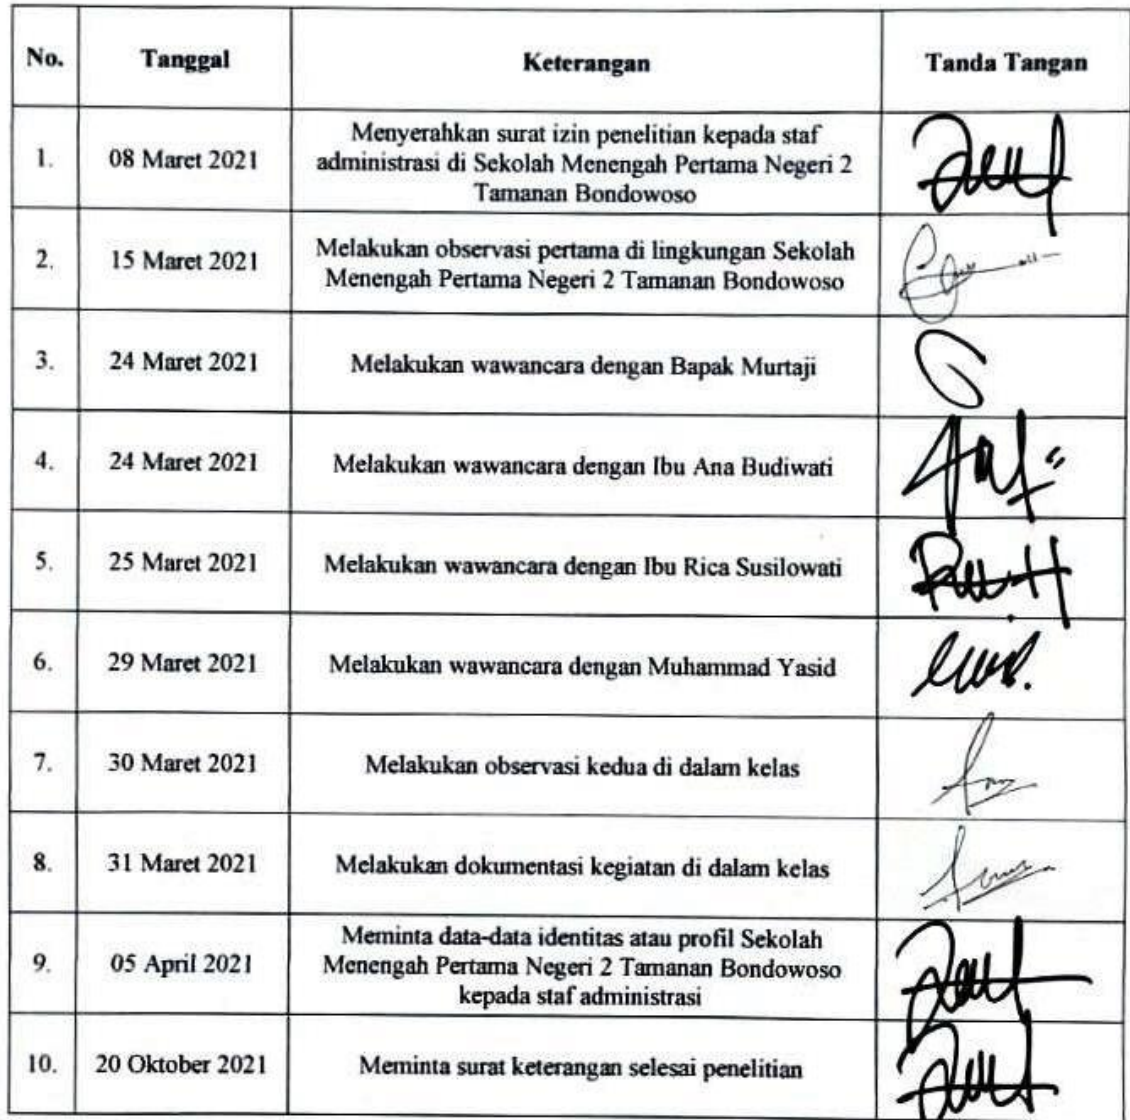 No. Tanggal Keterangan Tanda Tangan
1. 08 Maret 2021 Menyerahkan surat izin penelitian kepada staf
administrasi di Sekolah Menengah Pertama Negeri 2
Tamanan Bondowoso
2. 15 Maret 2021 Melakukan observasi pertama di lingkungan Sekolah
Menengah Pertama Negeri 2 Tamanan Bondowoso
3. 24 Maret 2021 Melakukan wawancara dengan Bapak Murtaji
4. 24 Maret 2021 Melakukan wawancara dengan Ibu Ana Budiwati
5. 25 Maret 2021 Melakukan wawancara dengan Ibu Rica Susilowati
6. 29 Maret 2021 Melakukan wawancara dengan Muhammad Yasid
7. 30 Maret 2021 Melakukan observasi kedua di dalam kelas
8. 31 Maret 2021 Melakukan dokumentasi kegiatan di dalam kelas
9. 05 April 2021 Meminta data-data identitas atau profil Sekolah
Menengah Pertama Negeri 2 Tamanan Bondowoso
kepada staf administrasi
10. 20 Oktober 2021 Meminta surat keterangan selesai penelitian